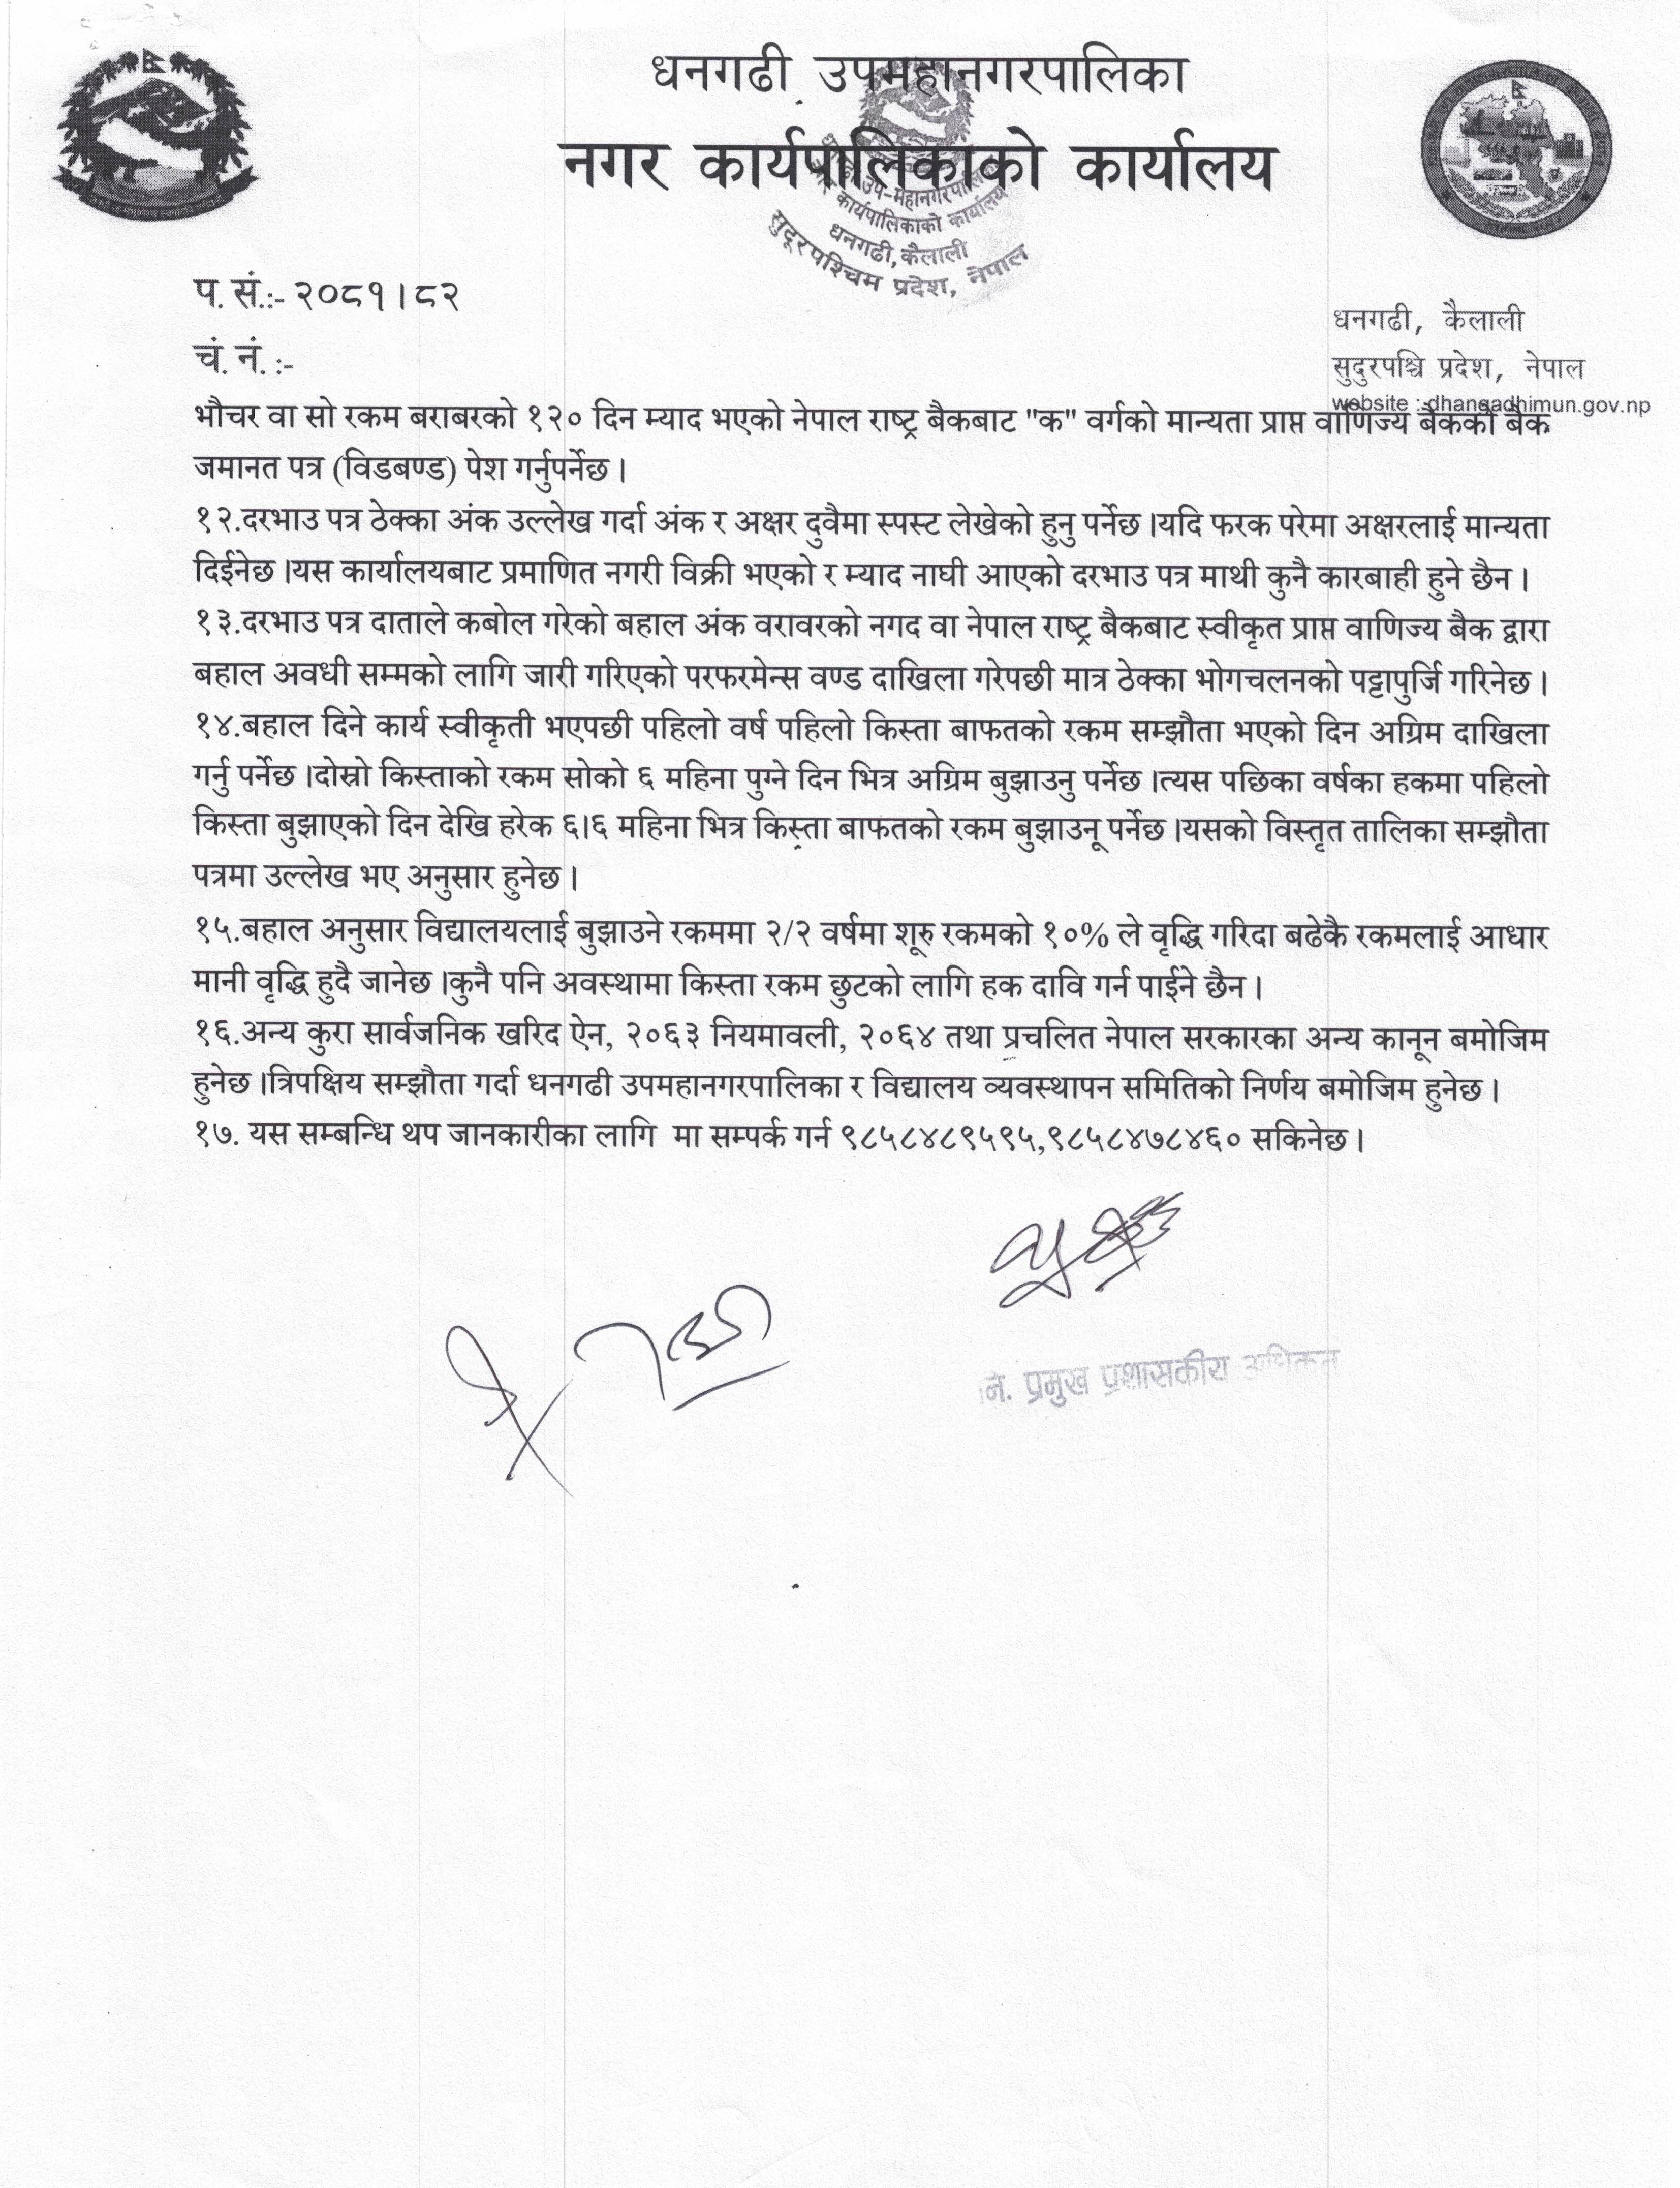 धनगढी उपमहानगरपालिका
नगर कार्यपालिकाको कार्यालय
उप-महानगरपालिका
कार्यपालिकाको कार्यालय
धनगढी, कैलाली
सुदूरपश्चिम प्रदेश, नेपाल
प. सं.:- २०८१।८२
चं. नं. :-
धनगढी, कैलाली
सुदुरपश्चि प्रदेश, नेपाल
website : dhangadhimun.gov.np
भौचर वा सो रकम बराबरको १२० दिन म्याद भएको नेपाल राष्ट्र बैकबाट "क" वर्गको मान्यता प्राप्त वाणिज्य बैकको बैक
जमानत पत्र (विडबण्ड) पेश गर्नुपर्नेछ ।
१२.दरभाउ पत्र ठेक्का अंक उल्लेख गर्दा अंक र अक्षर दुवैमा स्पस्ट लेखेको हुनु पर्नेछ ।यदि फरक परेमा अक्षरलाई मान्यता
दिईनेछ ।यस कार्यालयबाट प्रमाणित नगरी विक्री भएको र म्याद नाघी आएको दरभाउ पत्र माथी कुनै कारबाही हुने छैन ।
१३.दरभाउ पत्र दाताले कबोल गरेको बहाल अंक वरावरको नगद वा नेपाल राष्ट्र बैकबाट स्वीकृत प्राप्त वाणिज्य बैक द्वारा
बहाल अवधी सम्मको लागि जारी गरिएको परफरमेन्स वण्ड दाखिला गरेपछी मात्र ठेक्का भोगचलनको पट्टापुर्जि गरिनेछ ।
१४.बहाल दिने कार्य स्वीकृती भएपछी पहिलो वर्ष पहिलो किस्ता बाफतको रकम सम्झौता भएको दिन अग्रिम दाखिला
गर्नु पर्नेछ ।दोस्रो किस्ताको रकम सोको ६ महिना पुग्ने दिन भित्र अग्रिम बुझाउनु पर्नेछ ।त्यस पछिका वर्षका हकमा पहिलो
किस्ता बुझाएको दिन देखि हरेक ६।६ महिना भित्र किस्ता बाफतको रकम बुझाउनू पर्नेछ ।यसको विस्तृत तालिका सम्झौता
पत्रमा उल्लेख भए अनुसार हुनेछ ।
१५.बहाल अनुसार विद्यालयलाई बुझाउने रकममा २/२ वर्षमा शूरु रकमको १०% ले वृद्धि गरिदा बढेकै रकमलाई आधार
मानी वृद्धि हुदै जानेछ ।कुनै पनि अवस्थामा किस्ता रकम छुटको लागि हक दावि गर्न पाईने छैन ।
१६.अन्य कुरा सार्वजनिक खरिद ऐन, २०६३ नियमावली, २०६४ तथा प्रचलित नेपाल सरकारका अन्य कानून बमोजिम
हुनेछ ।त्रिपक्षिय सम्झौता गर्दा धनगढी उपमहानगरपालिका र विद्यालय व्यवस्थापन समितिको निर्णय बमोजिम हुनेछ ।
१७. यस सम्बन्धि थप जानकारीका लागि मा सम्पर्क गर्न ९८५८४८९५९५,९८५८४७८४६० सकिनेछ ।
नि. प्रमुख प्रशासकीय अधिकृत